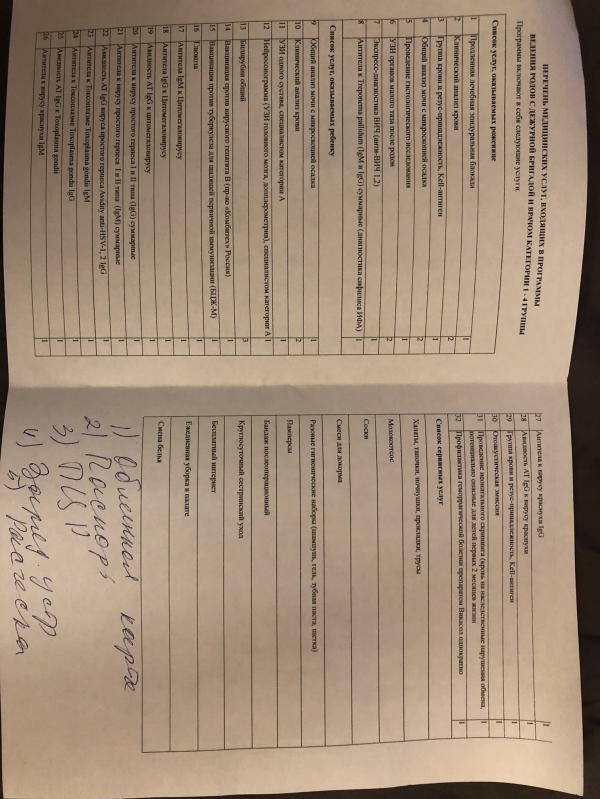 ПЕРЕЧЕНЬ МЕДИЦИНСКИХ УСЛУГ, ВХОДЯЩИХ В ПРОГРАММЫ
ВЕДЕНИЯ РОДОВ С ДЕЖУРНОЙ БРИГАДОЙ И ВРАЧОМ КАТЕГОРИИ 1 - 4 ГРУППЫ
Программы включают в себя следующие услуги:
Список услуг, оказываемых роженице
1 Продленная лечебная эпидуральная блокада 1
2 Клинический анализ крови 2
3 Группа крови и резус-принадлежность, Kell-антиген 1
4 Общий анализ мочи с микроскопией осадка 2
5 Проведение гистологического исследования 1
6 УЗИ органов малого таза после родов 2
7 Экспресс-диагностика ВИЧ (анти-ВИЧ 1,2) 1
8 Антитела к Treponema pallidum (IgM и IgG) суммарные (диагностика сифилиса ИФА) 1
Список услуг, оказываемых ребенку
9 Общий анализ мочи с микроскопией осадка 1
10 Клинический анализ крови 2
11 УЗИ одного сустава, специалистом категории А 1
12 Нейросонограмма (УЗИ головного мозга, допплерометрия), специалистом категории А 1
13 Билирубин общий 3
14 Вакцинация против вирусного гепатита В (пр-во «Комбитех» Россия) 1
15 Вакцинация против туберкулеза для щадящей первичной иммунизации (БЦЖ-М) 1
16 Глюкоза 1
17 Антитела IgM к Цитомегаловирусу 1
18 Антитела IgG к Цитомегаловирусу 1
19 Авидность АТ IgG к цитомегаловирусу 1
20 Антитела к вирусу простого герпеса I и II типа (IgG) суммарные 1
21 Антитела к вирусу простого герпеса I и II типа (IgM) суммарные 1
22 Авидность АТ IgG вируса простого герпеса Avidity anti-HSV-1, 2 IgG 1
23 Антитела к Токсоплазме Toxoplasma gondii IgM 1
24 Антитела к Токсоплазме Toxoplasma gondii IgG 1
25 Авидность АТ IgG к Toxoplasma gondii 1
26 Антитела к вирусу краснухи IgM 1
27 Антитела к вирусу краснухи IgG 1
28 Авидность АТ IgG к вирусу краснухи 1
29 Группа крови и резус-принадлежность, Kell-антиген 1
30 Отоакустическая эмиссия 1
31 Проведение неонатального скрининга (кровь на наследственные нарушения обмена,
потенциально опасные для детей первых 2 месяцев жизни 1
32 Профилактика геморрагической болезни препаратом Викасол однократно 1
Список сервисных услуг
Халаты, тапочки, ночнушки, прокладки, трусы
Молокоотсос
Соски
Смеси для докорма
Разовые гигиенические наборы (шампунь, гель, зубная паста, щетка)
Памперсы
Бандаж послеоперационный
Круглосуточный сестринский уход
Бесплатный интернет
Ежедневная уборка в палате
Смена белья
1) Обменная карта
2) Паспорт
3)
4)
5) Расческа